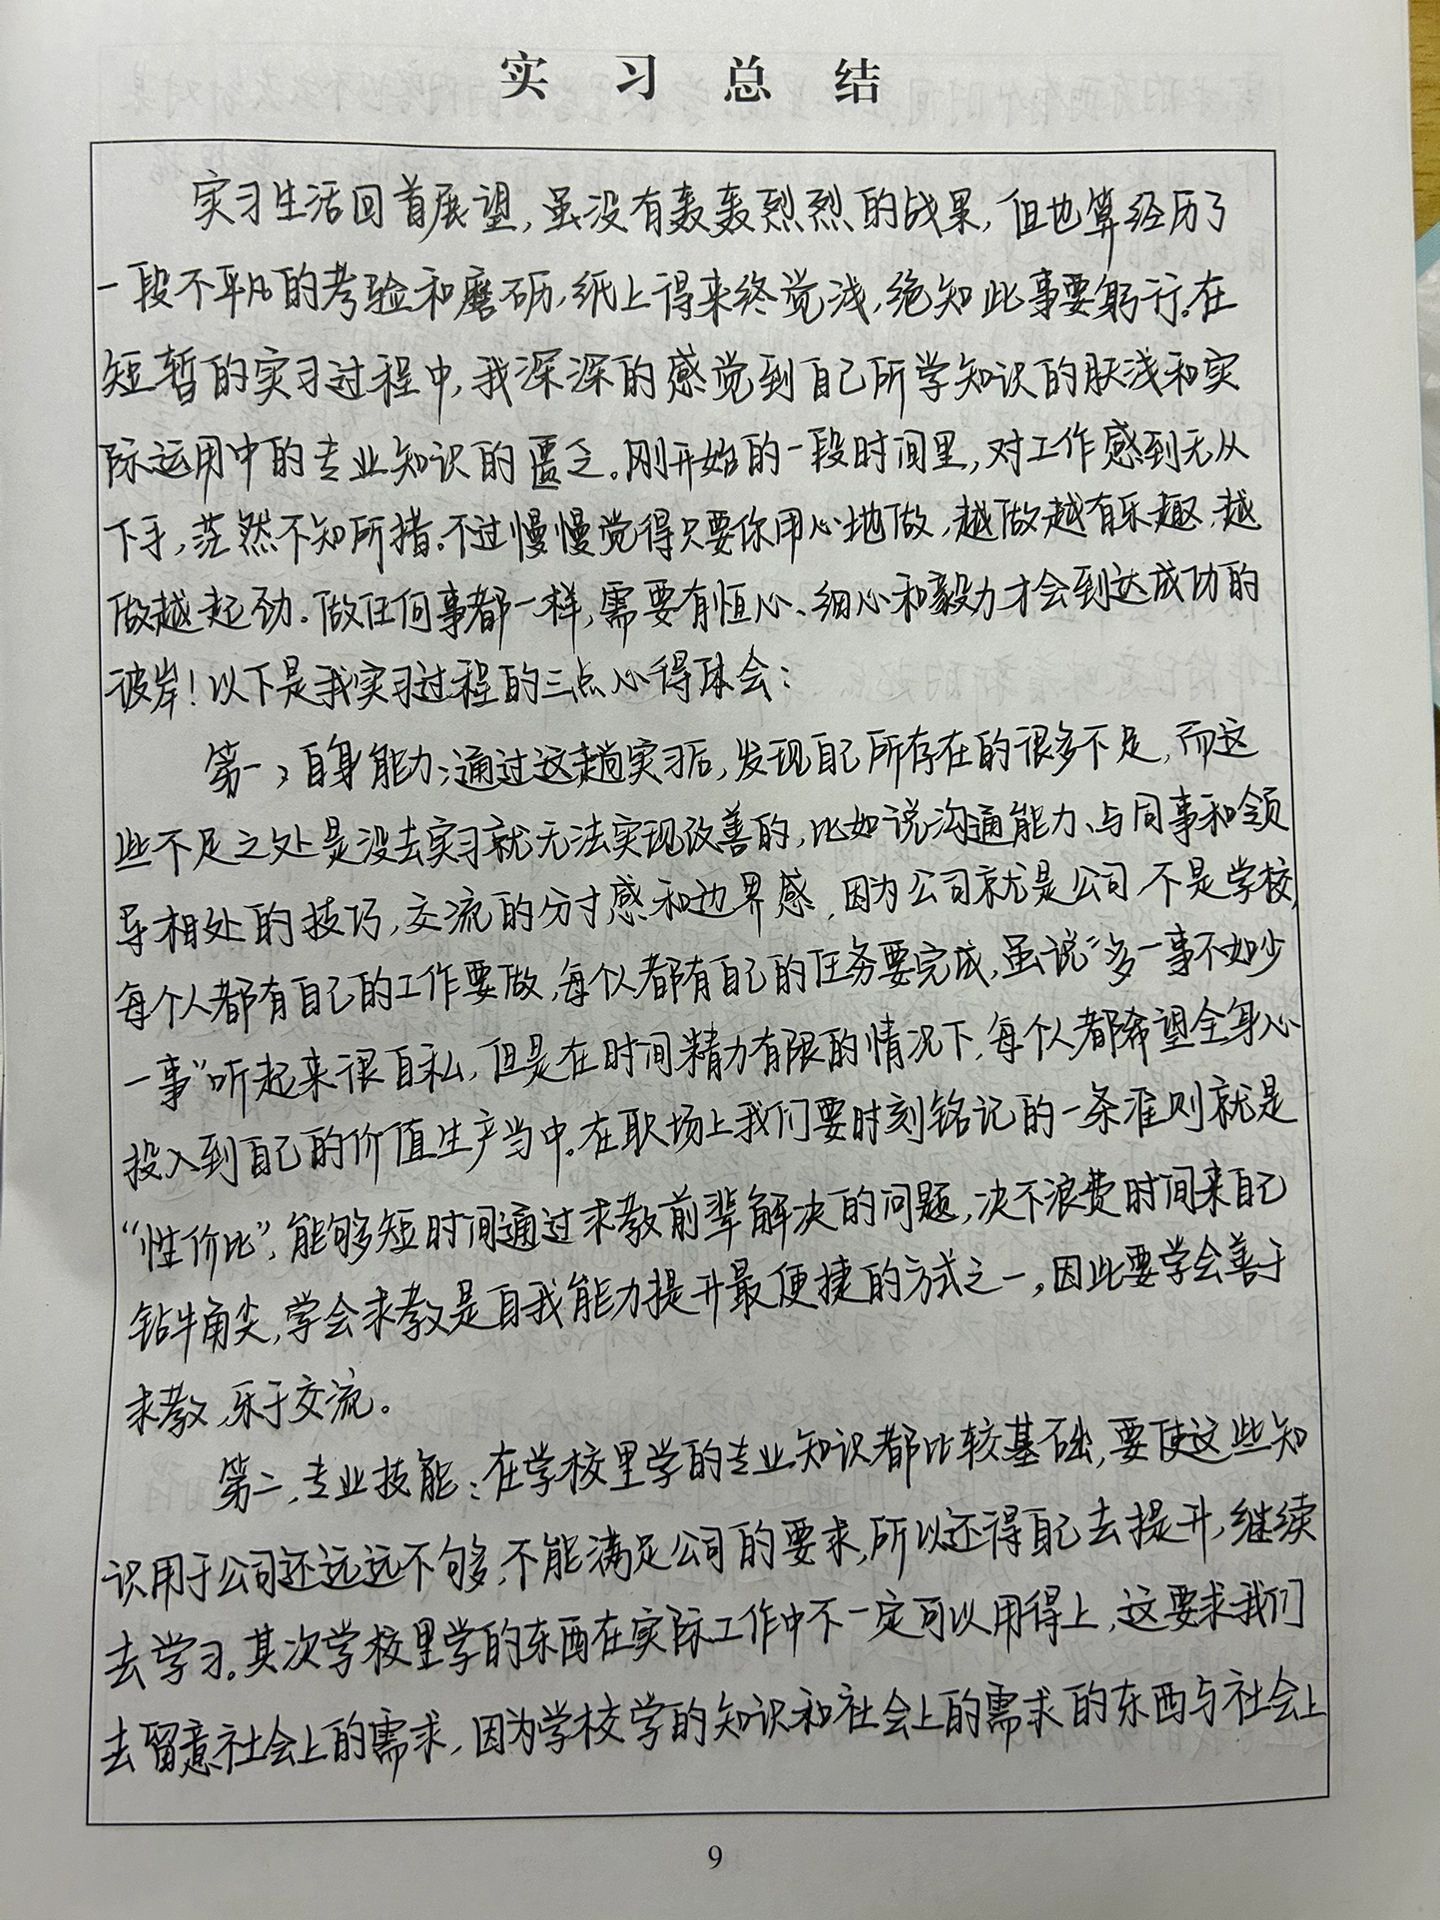 实习总结
实习生活回首展望，虽没有轰轰烈烈的战果，但也算经历了
一段不平凡的考验和磨砺，纸上得来终觉浅，绝知此事要躬行。在
短暂的实习过程中，我深深的感觉到自己所学知识的肤浅和实
际运用中的专业知识的匮乏。刚开始的一段时间里，对工作感到无从
下手，茫然不知所措。不过慢慢觉得只要你用心地做，越做越有乐趣，越
做越起劲。做任何事都一样，需要有恒心、细心和毅力才会到达成功的
彼岸！以下是我实习过程的三点心得体会：
第一，自身能力；通过这趟实习后，发现自己所存在的很多不足，而这
些不足之处是没去实习就无法实现改善的，比如说沟通能力、与同事和领
导相处的技巧，交流的分寸感和边界感，因为公司就是公司，不是学校，
每个人都有自己的工作要做，每个人都有自己的任务要完成，虽说“多一事不如少
一事”听起来很自私，但是在时间精力有限的情况下，每个人都希望全身心
投入到自己的价值生产当中。在职场上我们要时刻铭记的一条准则就是
“性价比”，能够短时间通过求教前辈解决的问题，决不浪费时间来自己
钻牛角尖，学会求教是自我能力提升最便捷的方式之一，因此要学会善于
求教，乐于交流。
第二，专业技能：在学校里学的专业知识都比较基础，要使这些知
识用于公司还远远不够，不能满足公司的要求，所以还得自己去提升，继续
去学习。其次学校里学的东西在实际工作中不一定可以用得上，这要求我们
去留意社会上的需求，因为学校学的知识和社会上的需求的东西与社会上
9